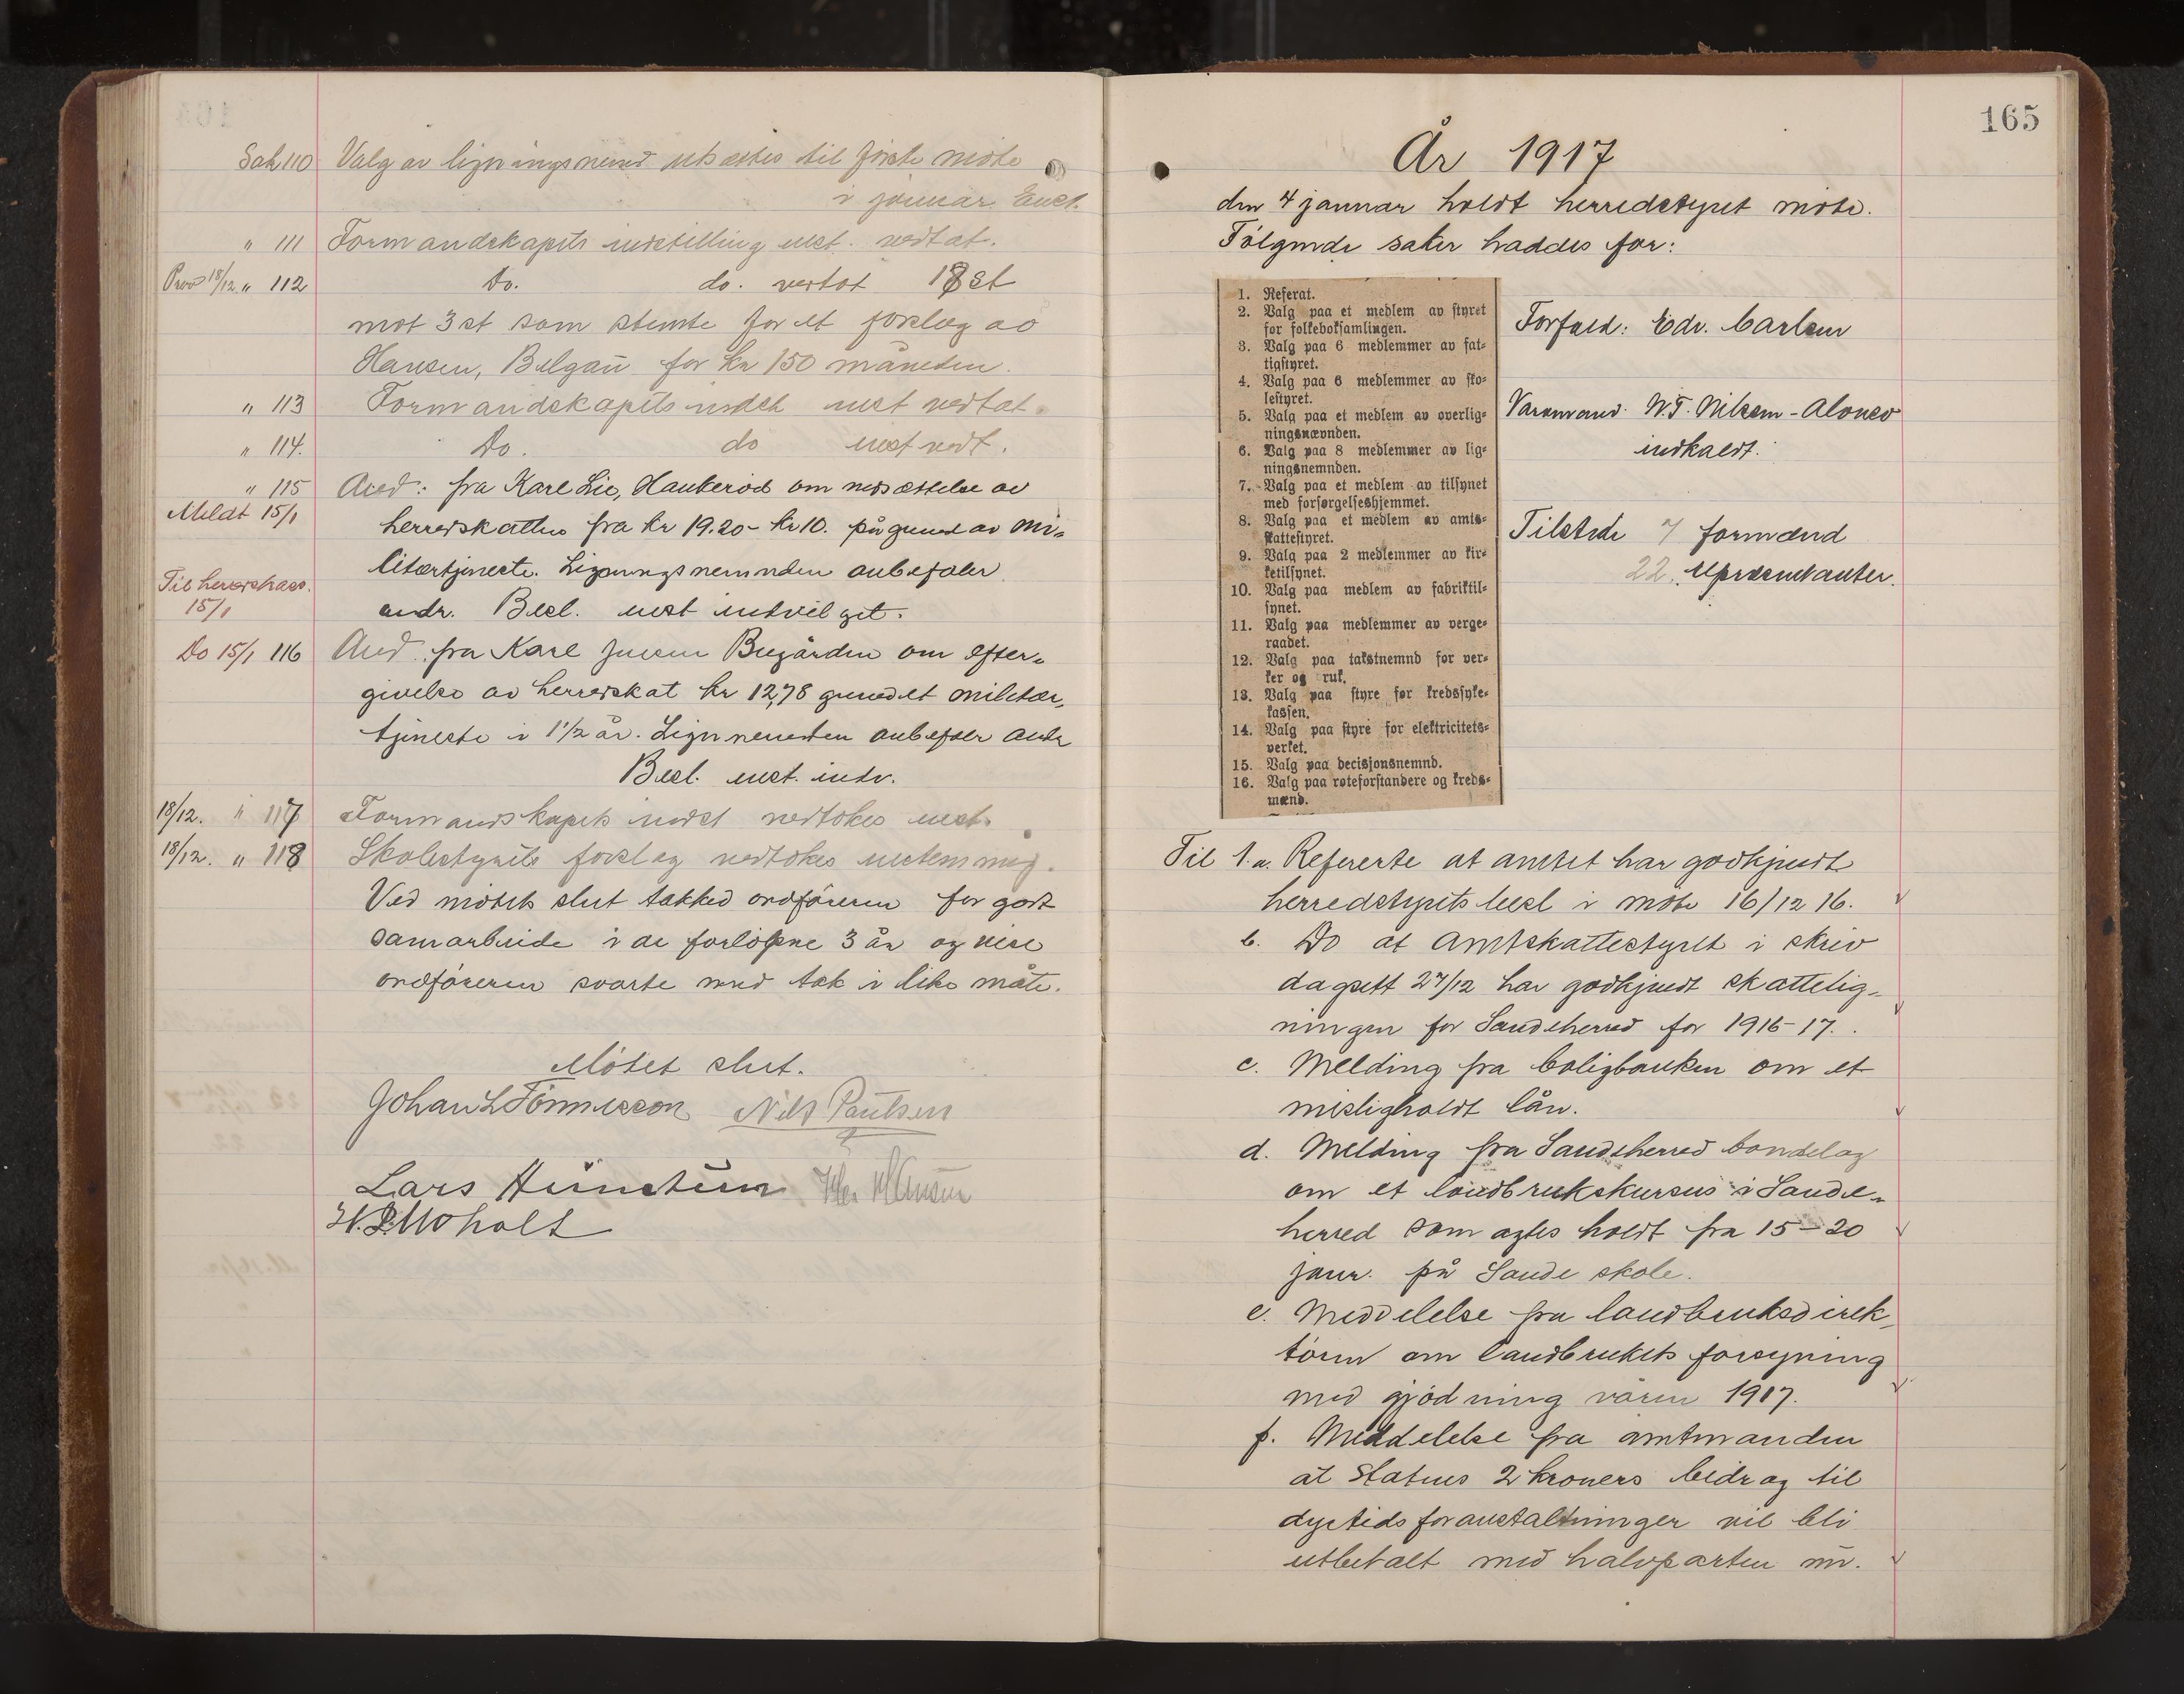 Sak 110 Valg av ligningsnevnd utsættes til förste möte
i januar. Enst.
" 111 Formandskapets indstilling enst. vedtat.
Prov 18/12 " 112 Do. do. vertat 18 st
mot 3 st som stemte for et forslag av
Hansen, Bulgau for kr 150 måneden.
" 113 Formandskapets indst enst vedtat.
" 114. Do. do enst vedt.
" 115 And: fra Karl Lie, Haukeröd om nedsættelse av
Meldt 15/1 herredskatten fra kr 19.20 - kr 10. på grund av mi-
litærtjeneste. Ligningsnemnden anbefaler
Til herredskass. 15/1 andr. Besl. enst indvilget.
Do 15/1 116 And. fra Karl Jensen Bugården om efter-
givelse av herredskat kr 12,78 grundet militær-
tjeneste i 1 1/2 år. Lignnemnden anbefaler andr
Besl. enst. indv.
18/12. " 117 Formandskapets indst vedtokes enst.
18/12. " 118 Skolestyrets forslag vedtokes enstemmig.
Ved mötets slut takked ordföreren for godt
samarbeide i de forlöpne 3 år og vise
ordföreren svarte med tak i like måte.
Mötet slut.
Johan L Tönnesson Nils Paulsen
Lars Hunstun
165
År 1917
den 4 januar holdt herredstyret möte.
Fölgende saker haddes for:
1. Referat.
2. Valg paa et medlem av styret
for folkeboksamlingen.
3. Valg paa 6 medlemmer av fat-
tigstyret.
4. Valg paa 6 medlemmer av sko-
lestyret.
5. Valg paa et medlem av overlig-
ningsnævnden.
6. Valg paa 8 medlemmer av lig-
ningsnemnden.
7. Valg paa et medlem av tilsynet
med forsørgelseshjemmet.
8. Valg paa et medlem av amts-
skattestyret.
9. Valg paa 2 medlemmer av kir-
ketilsynet.
10. Valg paa medlem av fabriktil-
synet.
11. Valg paa medlemmer av verge-
raadet.
12. Valg paa takstnemnd for ver-
ker og bruk.
13. Valg paa styre for kredssyke-
kassen.
14. Valg paa styre for elektricitets-
verket.
15. Valg paa decisjonsnemnd.
16. Valg paa roteforstandere og kreds-
mænd.
Forfald: Edv. Carlsen
Varamand. N. T. Nilsen - Alonso
indkaldt.
Tilstede 7 formænd
22 repræsentanter.
Til 1.a. Refererte at amtet har godkjendt
herredstyrets besl i möte 16/12 16.
b. Do at Amtskattestyret i skriv
dagsett 27/12 har godkjendt skattelig-
ningen for Sandeherred for 1916-17.
c. Melding fra boligbanken om et
misligholdt lån.
d. Melding fra Sandeherred bondelag
om et landbrukskursus i Sande-
herred som agtes holdt fra 15-20
janr. på Sande skole.
e. Meddelelse fra landbruksdirek-
tören om landbrukets forsyning
med gjödning våren 1917.
f. Meddelelse fra amtmanden
at statens 2 kroners bidrag til
dyrtidsforanstaltninger vil bli
utbetalt med halvparten nu.